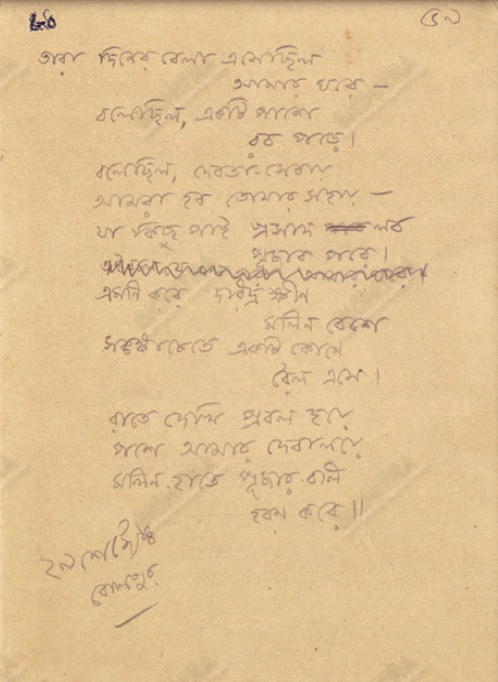 ৬০ (৫৯)
তারা দিনের বেলা এসেছিল
আমার ঘরে —
বলেছিল, একটি পাশে
রব পড়ে।
বলেছিল, দেবতা-সেবায়
আমরা হব তোমার সহায় —
যা কিছু পাই প্রসাদ লব
পূজার পরে।
এমনি করে দরিদ্র ক্ষীণ
মলিন বেশে
সঙ্কোচেতে একটি কোণে
রৈল এসে।
রাতে দেখি প্রবল হয়ে
পশে আমার দেবালয়ে
মলিন হাতে পূজার বলি
হরণ করে॥
২৯শে জ্যৈষ্ঠ
বোলপুর